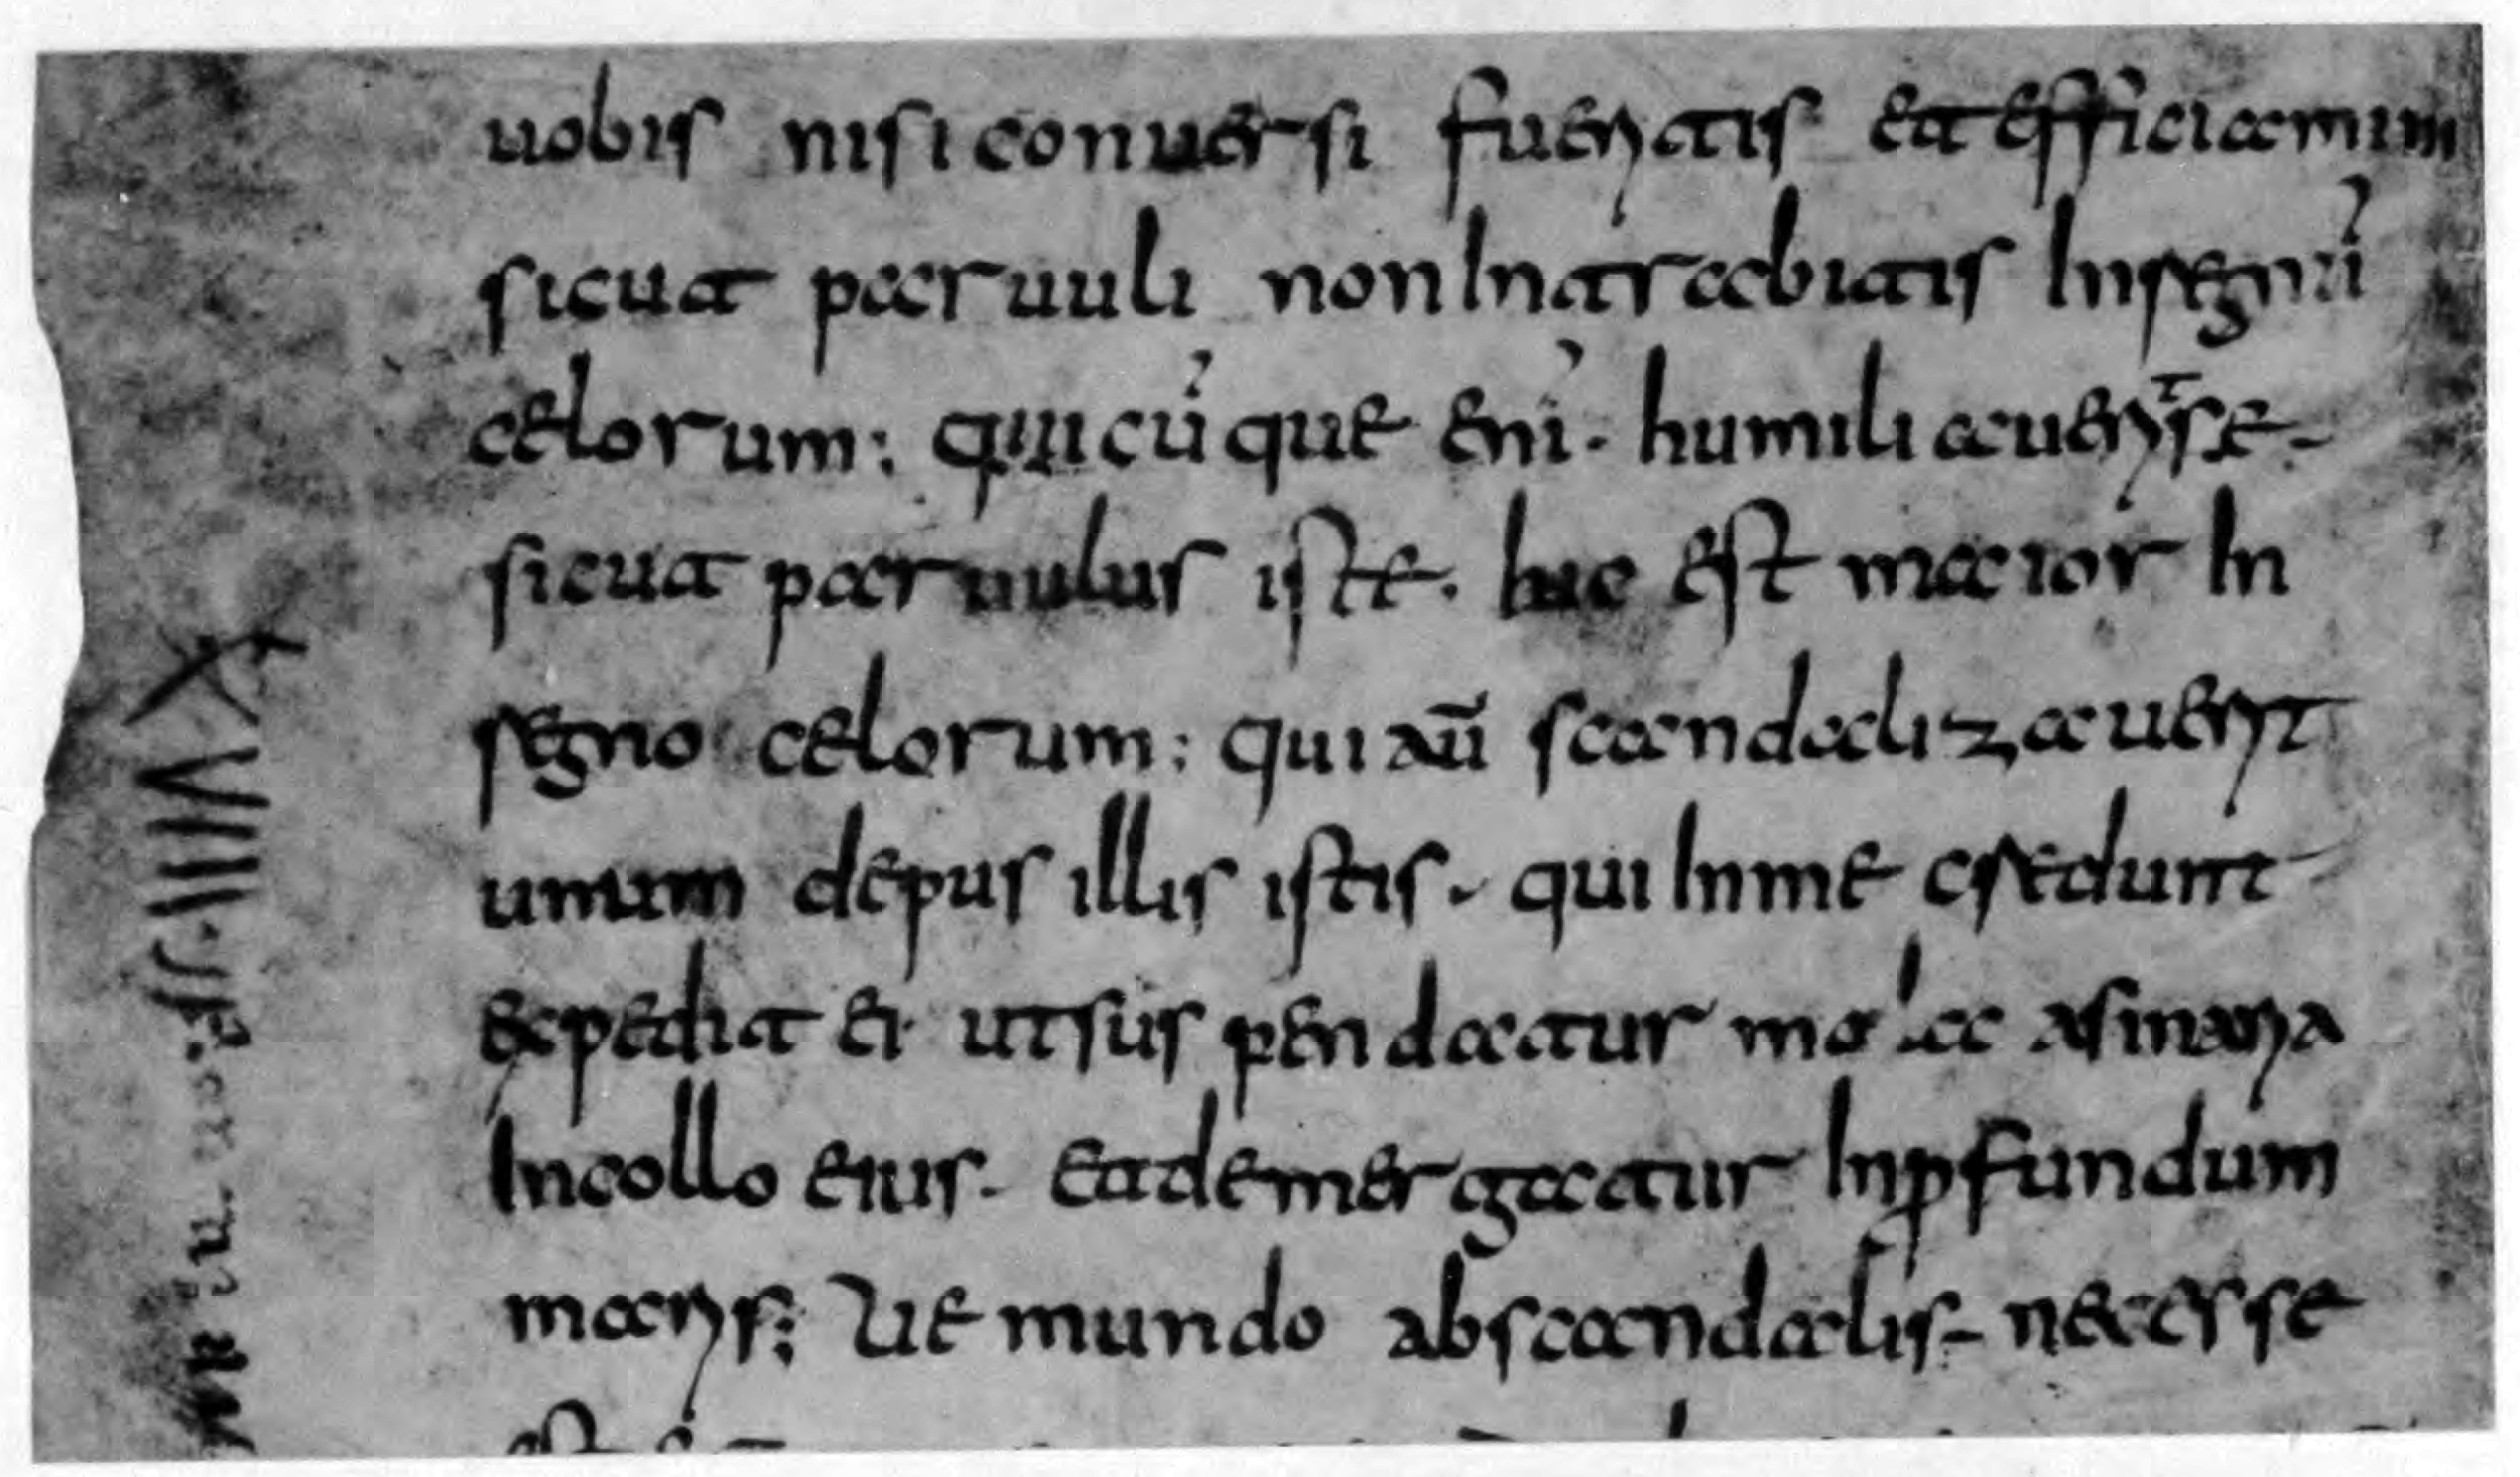 uobis nisi conuersi fueritis et efficiamini
sicut paruuli non Intrabitis In regnũ
celorum; quicũque enĩ. humiliauerit se.
sicut paruulus iste. hic est maior In
regno celorum; qui aũ scandalizauerit
unum de pusillis istis. qui In me credunt
expedit ei ut suspendatur mola asinaria
In collo eius. et demergatur In ꝓfundum
maris; Ue mundo ab scandalis. necesse
XVIIII.